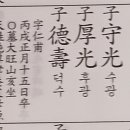 子守光 수광
子厚光 후광
子德壽 덕수
字仁甫
丙戌正月十五日卒
○墓大旺山亥坐